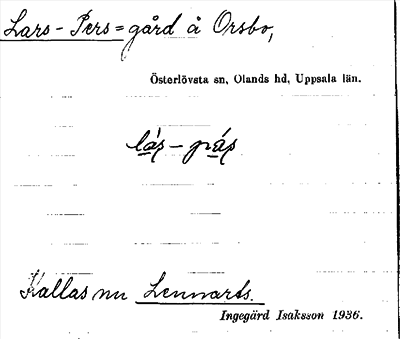 Lars-Pers=gård å Orsbo,
Österlövsta sn, Olands hd, Uppsala län.
lás-pás
Kallas nu Lennarts.
Ingegärd Isaksson 1936.